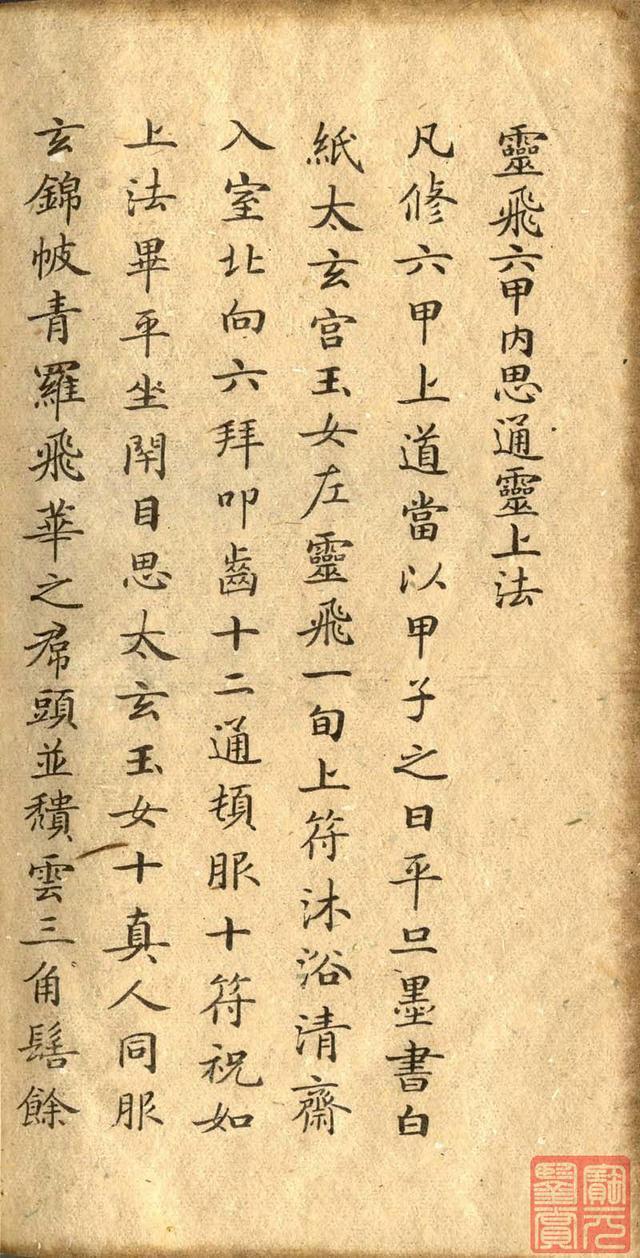 靈飛六甲內思通靈上法
凡修六甲上道當以甲子之日平旦墨書白
紙太玄宮玉女左靈飛一旬上符沐浴清齋
入室北向六拜叩齒十二通頓服十符祝如
上法畢平坐閇目思太玄玉女十真人同服
玄錦帔青羅飛華之帬頭並穨雲三角髻餘
寶元
鑒賞